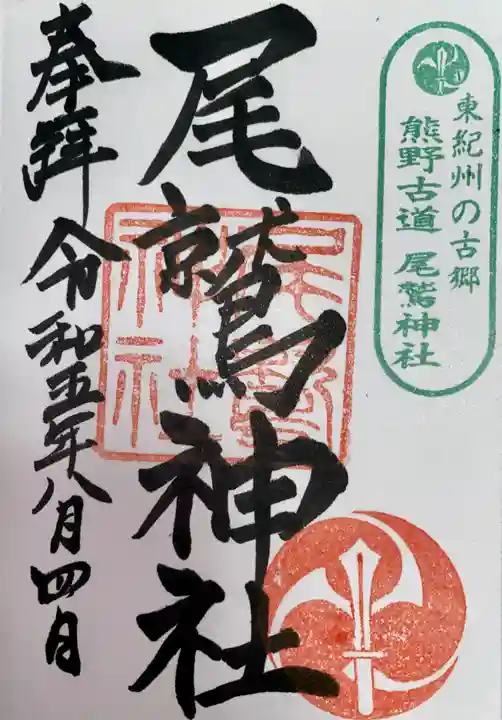 東紀州の古郷
熊野古道 尾鷲神社
尾鷲神社
奉拝 令和五年八月四日
尾鷲
神社